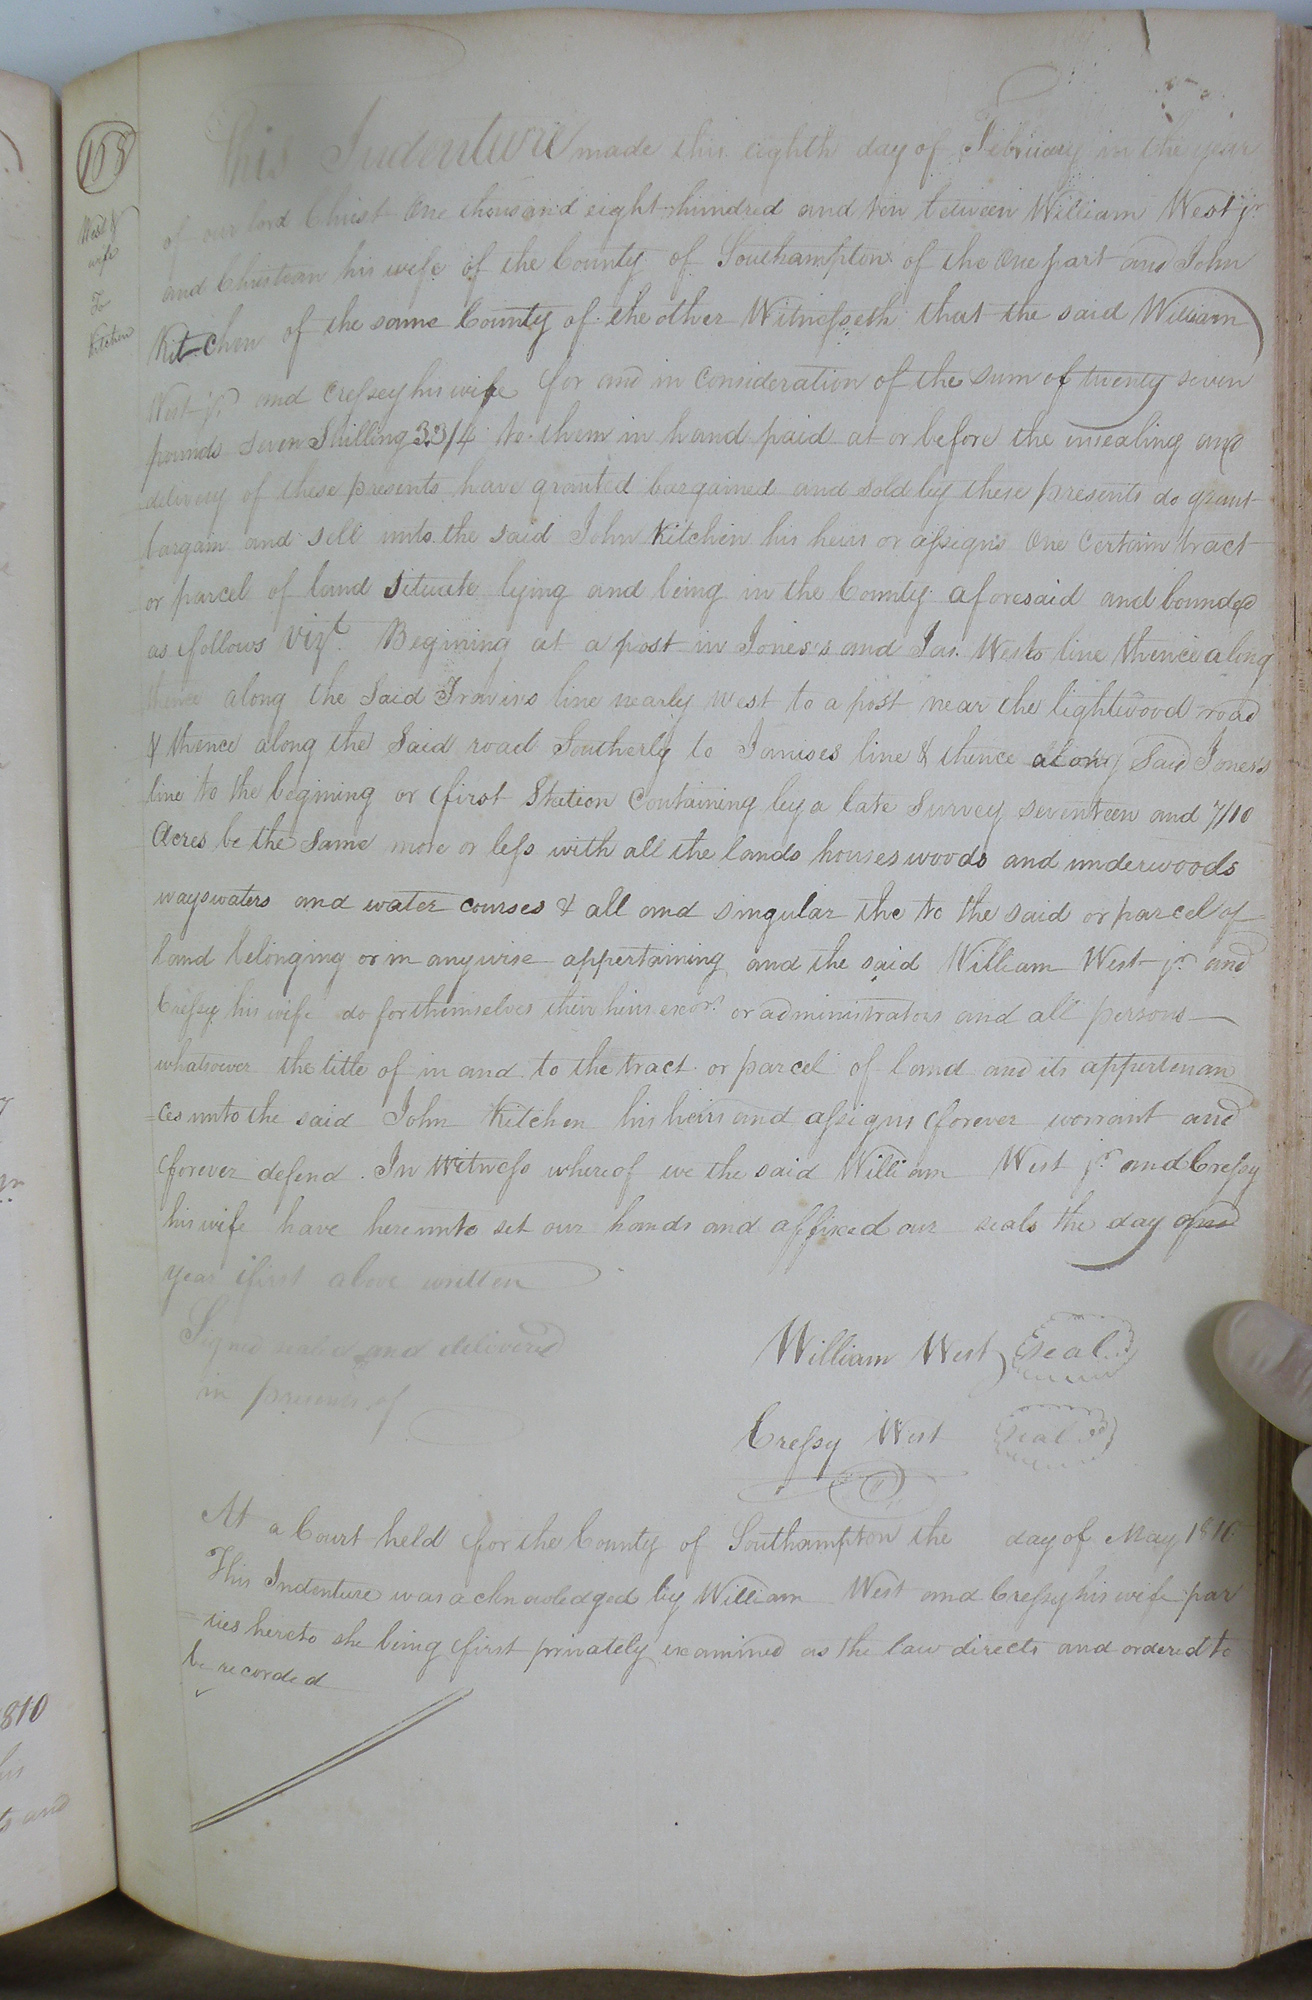 158
West &
wife
To
Kitchen
This Indenture made this eighth day of February in the year
of our lord Christ One thousand eight hundred and ten between William West jr
and Christean his wife of the County of Southampton of the One part and John
Kitchen of the same County of the other Witnesseth that the said William
West jr. and Cressey his wife for and in consideration of the sum of twenty seven
pounds seven Shilling 33/4 to them in hand paid at or before the ensealing and
delivery of these presents have granted bargained and sold by these presents do grant
bargain and sell unto the said John Kitchen his heirs or assigns One Certain tract
or parcel of land situate lying and being in the County aforesaid and bounded
as follows Vizt. Begining at a post in Jones's and Jas. Wests line thence along
thence along the Said line nearly West to a post near the lightwood road
& thence along the Said road Southerly to line & thence along Said Jones's
line to the begining or first Station Containing by a late Survey seventeen and 7/10
Acres be the Same more or less with all the lands houses woods and underwoods
ways waters and water courses & all and singular the to the said or parcel of
land belonging or in anywise appertaining and the said William West jr. and
Cressy his wife do for themselves their heirs exors. or administrators and all persons
whatsoever the title of in and to the tract or parcel of land and its appertenan
=ces unto the said John Kitchen his heirs and assigns forever warrant and
forever defend. In Witness whereof we the said William West jr. and Cressy
his wife have hereunto set our hands and affixed our seals the day and
year first above written
Signed sealed and delivered
in presents of
William West Seal
Cressy West Seal
At a Court held for the County of Southampton the day of May 1810
This Indenture was acknowledged by William West and Cressy his wife par
=ties hereto she being first privately examined as the law directs and ordered to
be recorded
810